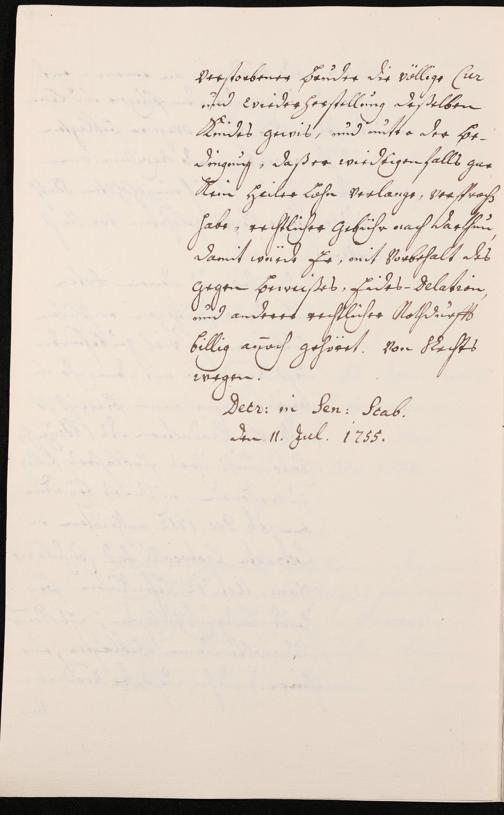 verstorbener Bruder die völlige Cur
und wiederherstellung desselben
Kindes gewis, und unter der Be-
dingung, daß er wiedrigenfalls gar
kein Heiler Lohn verlange, versprochen
habe, rechtlicher Gebühr nach darthun,
damit würde Er, mit Vorbehalt des
gegen Beweißes, Eides-Delation,
und anderer rechtlicher Nothdurfft
billig annoch gehöret. Von Rechts
wegen.
Decr: in Sen: Scab.
den 11. Jul. 1755.